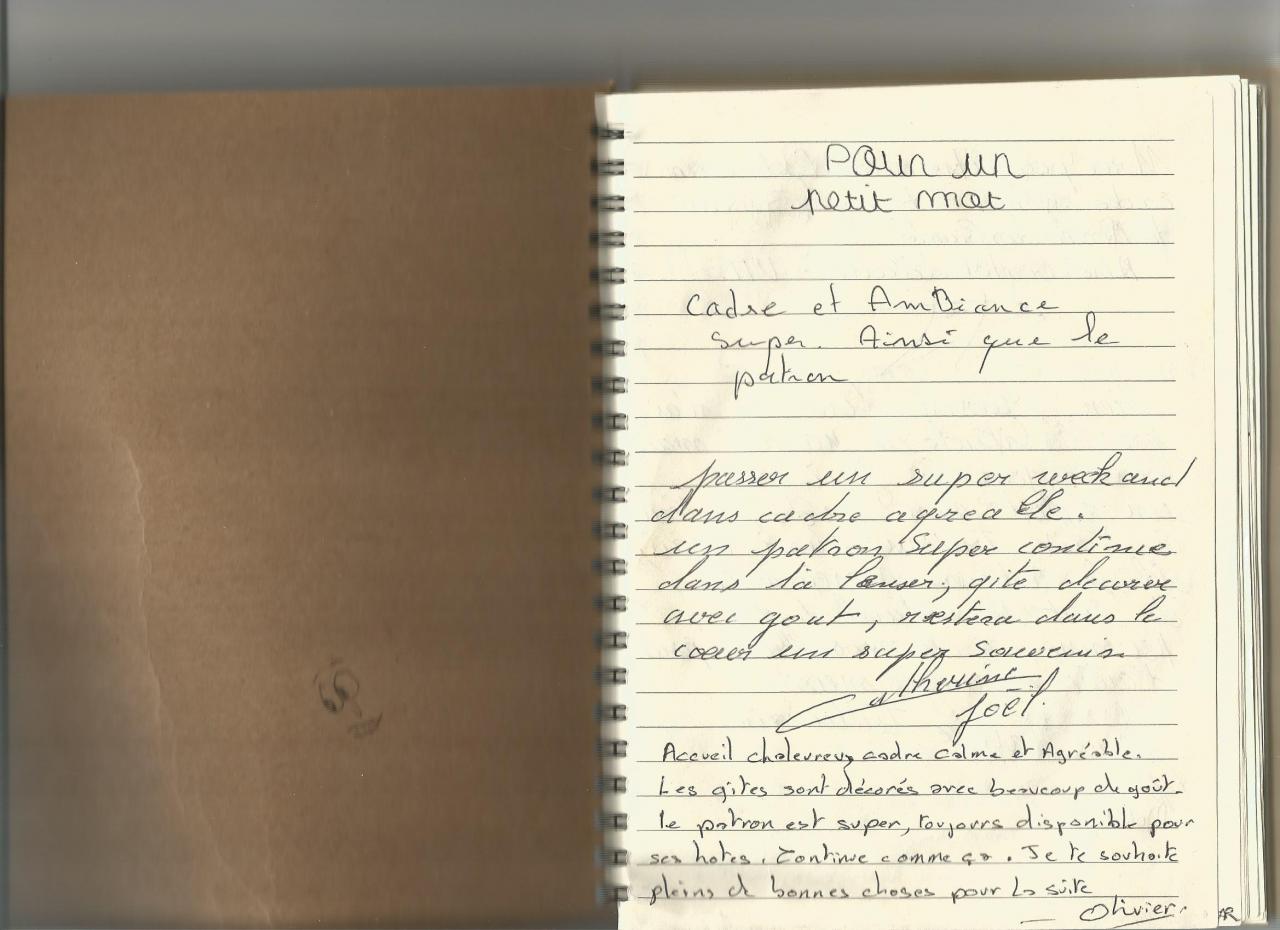 Pour un
petit mot
Cadre et AmBiance
super. Ainsi que le
patron
passer un super week and
dans cadre agreable.
un patron Super continue
dans ta lanser, gite decorer
avec gout, restera dans le
cœur un super Souvenir.
Catherine
Joël.
Accueil chaleureux, cadre calme et Agréable.
Les gîtes sont décorés avec beaucoup de goût.
le patron est super, toujours disponible pour
ses hotes. Continue comme ça. Je te souhaite
pleins de bonnes choses pour la suite
Olivier.
AR